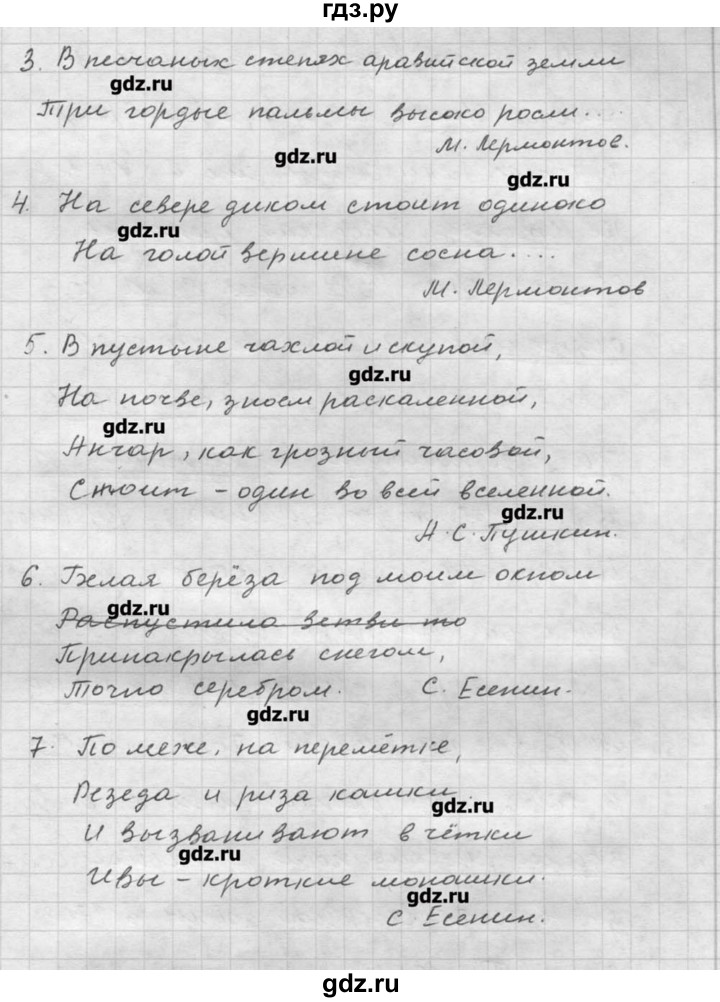 гдз.ру
3. В песчаных степях аравийской земли
gdz.ru
Три гордые пальмы высоко росли....
gdz.ru
М. Лермонтов.
gdz.ru
4. На севере диком стоит одиноко
gdz.ru
На голой вершине сосна....
М. Лермонтов
5. В пустыне чахлой и скупой,
gdz.ru
На почве, зноем раскаленной,
gdz.ru
Анчар, как грозный часовой,
Стоит - один во всей вселенной.
gdz.ru
А.С. Пушкин.
6. Белая берёза под моим окном
gdz.ru
Распустила ветви то
Принакрылась снегом,
Точно серебром. С. Есенин.
gdz.ru
7. По меже, на перемётке,
Резеда и риза кашки.
gdz.ru
И вызванивают в чётки
gdz.ru
Ивы - кроткие монашки.
gdz.ru
С Есенин.
gdz.ru